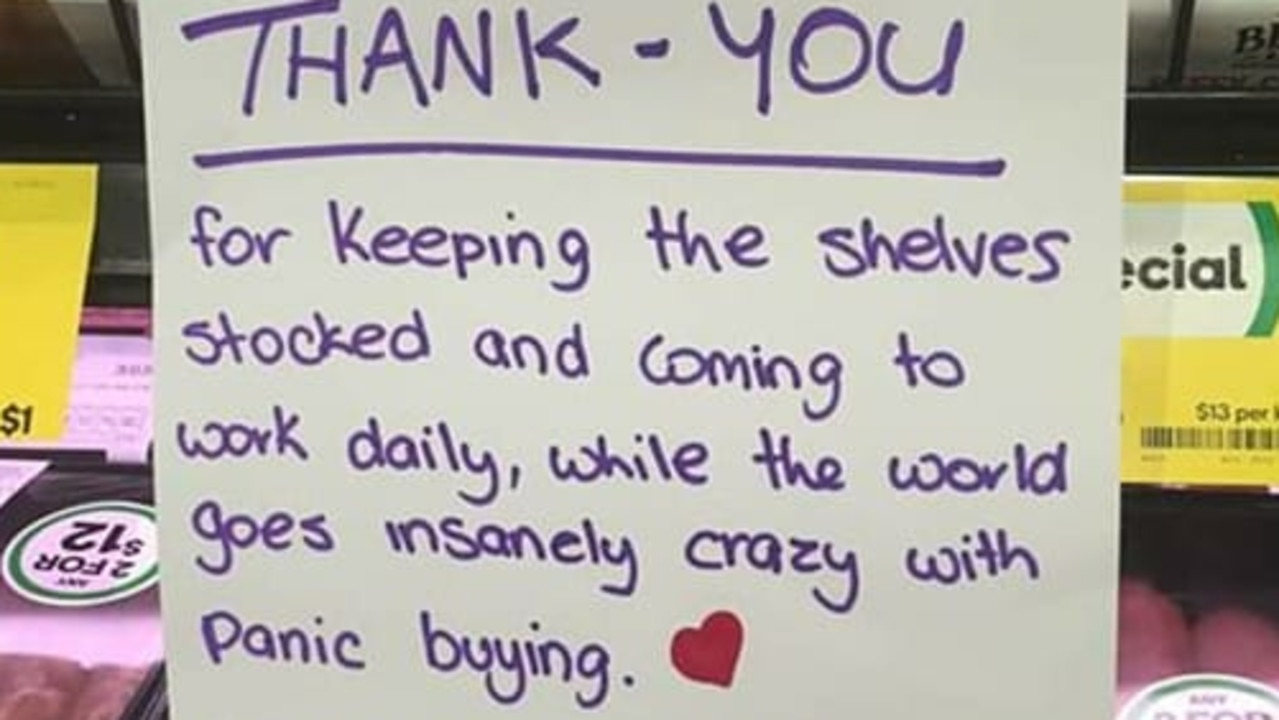 THANK-YOU
for keeping the shelves
stocked and coming to
work daily, while the world
goes insanely crazy with
panic buying.
$1
ANY
2 FOR
$12
ecial
$13 per
ANY
2 FOR